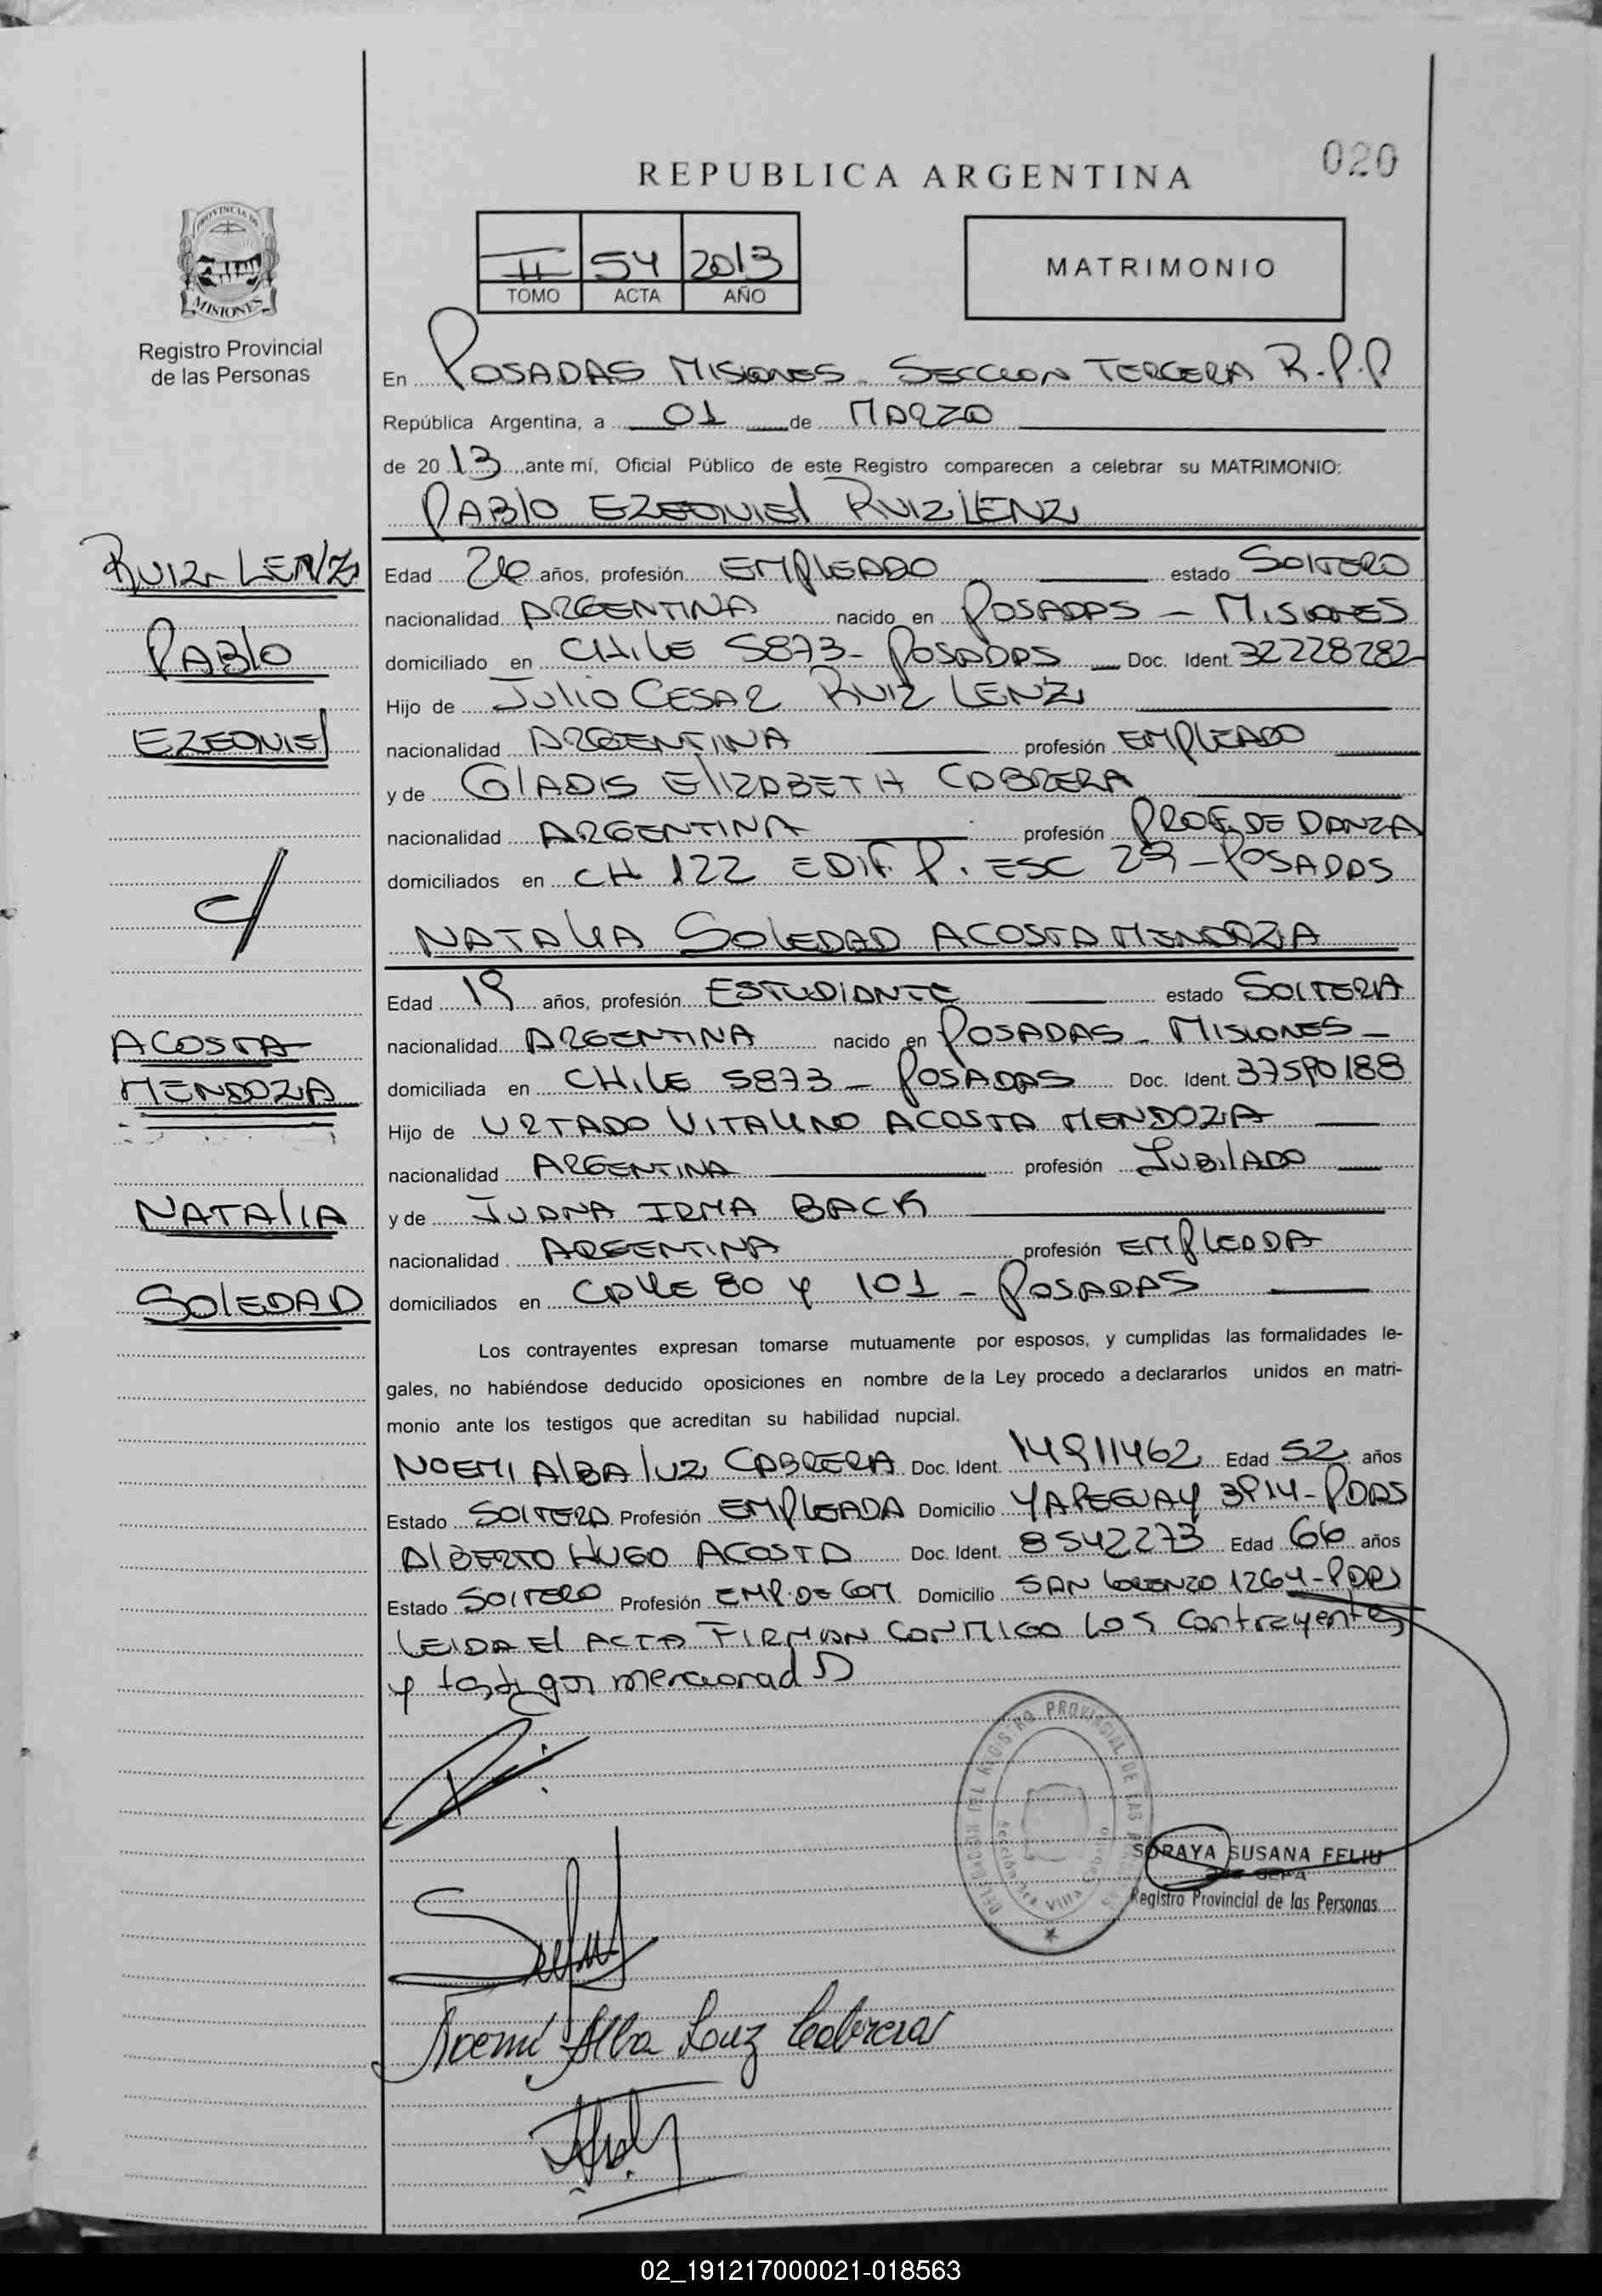 020
REPUBLICA ARGENTINA
II 54 2013
TOMO ACTA AÑO
MATRIMONIO
PROVINCIA DE
MISIONES
Registro Provincial
de las Personas
En POSADAS MISIONES - SECCION TERCERA R.P.P
República Argentina, a 01 de MARZO
de 20 13, ante mí, Oficial Público de este Registro comparecen a celebrar su MATRIMONIO:
PABLO EZEQUIEL RUIZ LENZ
RUIZ LENZ
PABLO
EZEQUIEL
c/
ACOSTA
MENDOZA
NATALIA
SOLEDAD
Edad 26 años, profesión EMPLEADO estado SOLTERO
nacionalidad ARGENTINA nacido en POSADAS - MISIONES
domiciliado en CHILE 5873 - POSADAS Doc. Ident. 32228282
Hijo de JULIO CESAR RUIZ LENZ
nacionalidad ARGENTINA profesión EMPLEADO
y de GLADIS ELIZABETH CABRERA
nacionalidad ARGENTINA profesión PROF. DE DANZA
domiciliados en CH 122 EDIF. P. ESC 29 - POSADAS
NATALIA SOLEDAD ACOSTA MENDOZA
Edad 19 años, profesión ESTUDIANTE estado SOLTERA
nacionalidad ARGENTINA nacido en POSADAS - MISIONES -
domiciliada en CHILE 5873 - POSADAS Doc. Ident. 37590188
Hijo de URTADO VITALINO ACOSTA MENDOZA
nacionalidad ARGENTINA profesión JUBILADO
y de JUANA IRMA BACK
nacionalidad ARGENTINA profesión EMPLEADA
domiciliados en CALLE 80 Y 101 - POSADAS
Los contrayentes expresan tomarse mutuamente por esposos, y cumplidas las formalidades le-
gales, no habiéndose deducido oposiciones en nombre de la Ley procedo a declararlos unidos en matri-
monio ante los testigos que acreditan su habilidad nupcial.
NOEMI ALBA LUZ CABRERA Doc. Ident. 14911462 Edad 52 años
Estado SOLTERA Profesión EMPLEADA Domicilio YAPEGUAY 3914 - PDAS
ALBERTO HUGO ACOSTA Doc. Ident. 8542273 Edad 66 años
Estado SOLTERO Profesión EMP. DE COM. Domicilio SAN LORENZO 1264 - PDAS
LEIDA EL ACTA FIRMAN CONMIGO LOS contrayentes
y testigos mencionados
REGISTRO PROVINCIAL DE LAS
Sección 3ra Villa Cabello
SORAYA SUSANA FELIU
Registro Provincial de las Personas
Noemí Alba Luz Cabrera
02_191217000021-018563